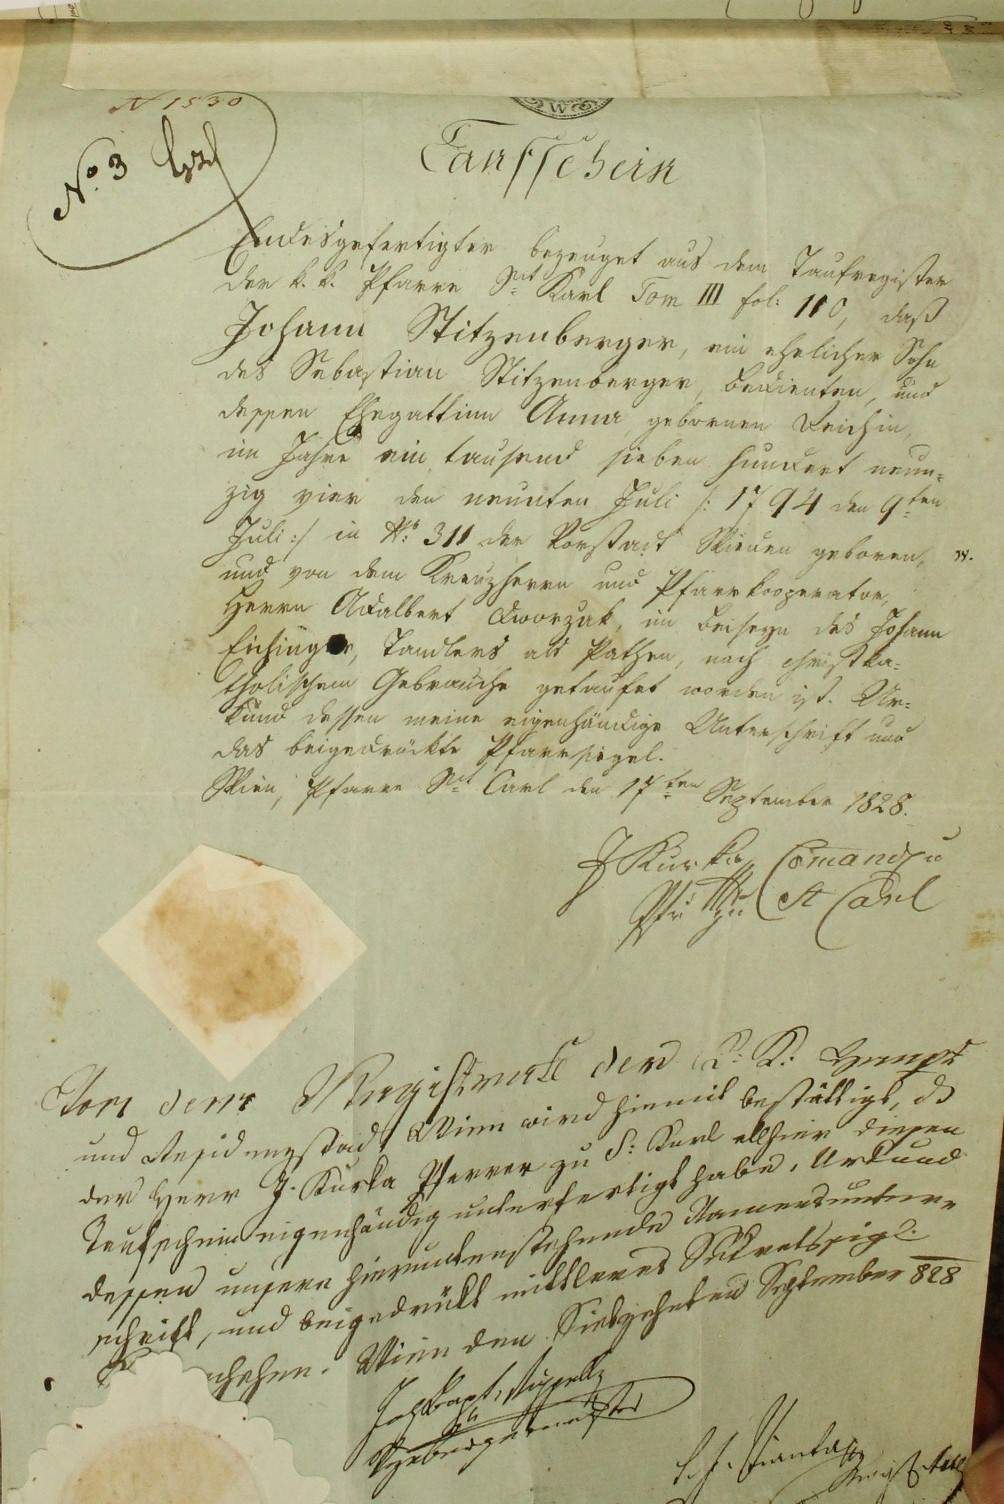 N 1530
No. 3
W
Taufschein
Endesgefertigter bezeuget aus dem Taufregister
der k. k. Pfarre Sct Karl Tom III fol: 110, daß
Johann Stitzenberger, ein ehelicher Sohn
des Sebastian Stitzenberger, Bedienten, und
dessen Ehegattinn Anna gebornen Reichin,
im Jahre ein tausend sieben hundert neun-
zig vier den neunten Juli /: 1794 den 9ten
Juli :/ in No: 311 der Vorstadt Wieden geboren,
und von dem Kreuzherrn und Pfarrkooperator,
Herrn Adalbert Dworzak, im Beiseyn des Johann
Eichinger, Tandlers als Pathen, nach christka-
tholischem Gebrauche getaufet worden ist. Ur-
kund dessen meine eigenhändige Unterschrift und
das beigedrückte Pfarrsiegel.
Wien, Pfarre Sct Carl den 17ten September 1828.
J Kurka Comand
zu St Carl
Von dem Magistrate der K: K: Haupt
und Residenzstadt Wien wird hiemit bestättigt, daß
der Herr J. Kurka Pfarrer zu S: Karl allhier diesen
Taufschein eigenhändig unterfertigt habe. Urkund
dessen unsere hieruntenstehende Namensunter-
schrift, und beigedrükt mittleres Sekretssigl:
Wien den Siebzehnten September 828
Vizebürgermeister